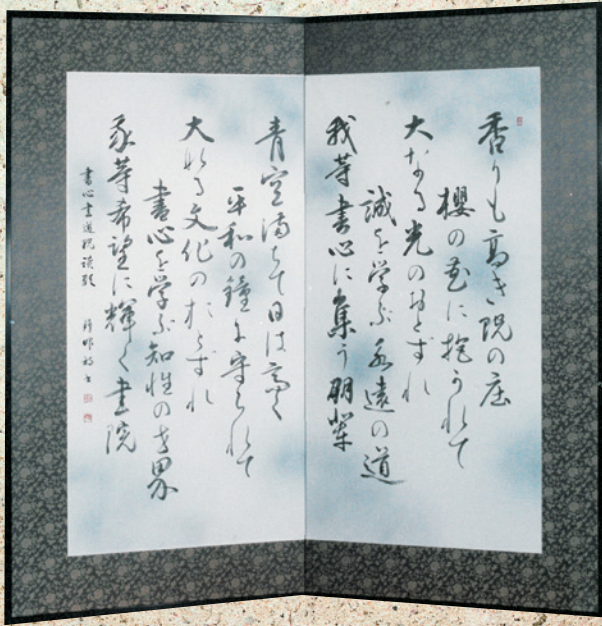 香りも高き院の庭
櫻の花に抱かれて
大なる光のおとずれ
誠を学ぶ永遠の道
我等書心に集う朋輩
青空満ちて日は高く
平和の鐘に守られて
大いなる文化のおとずれ
書心を学ぶ知性の世界
我等希望に輝く書院
書心書道院讃歌